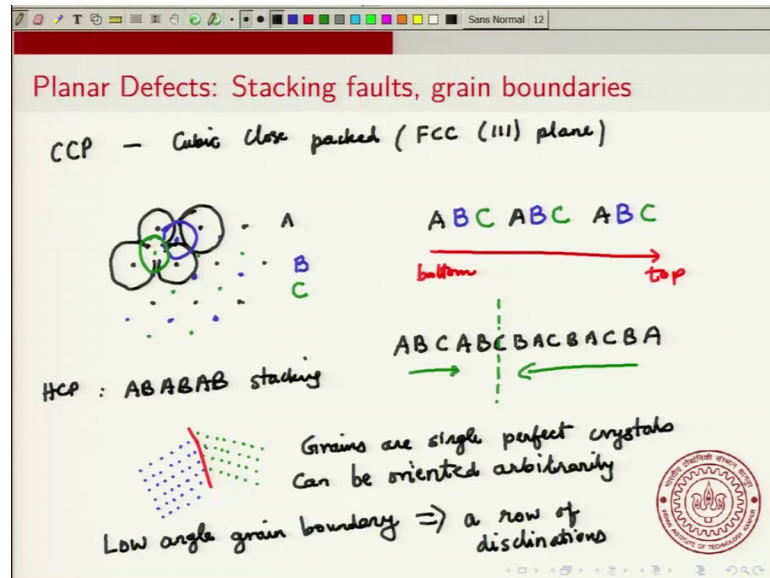 Sans Normal 12
Planar Defects: Stacking faults, grain boundaries
CCP - Cubic Close packed (FCC (111) plane)
A
B
C
A B C A B C A B C
bottom top
A B C A B C B A C B A C B A
HCP : ABABAB stacking
Grains are single perfect crystals
Can be oriented arbitrarily
Low angle grain boundary ⇒ a row of
disclinations
INDIAN INSTITUTE OF TECHNOLOGY KANPUR